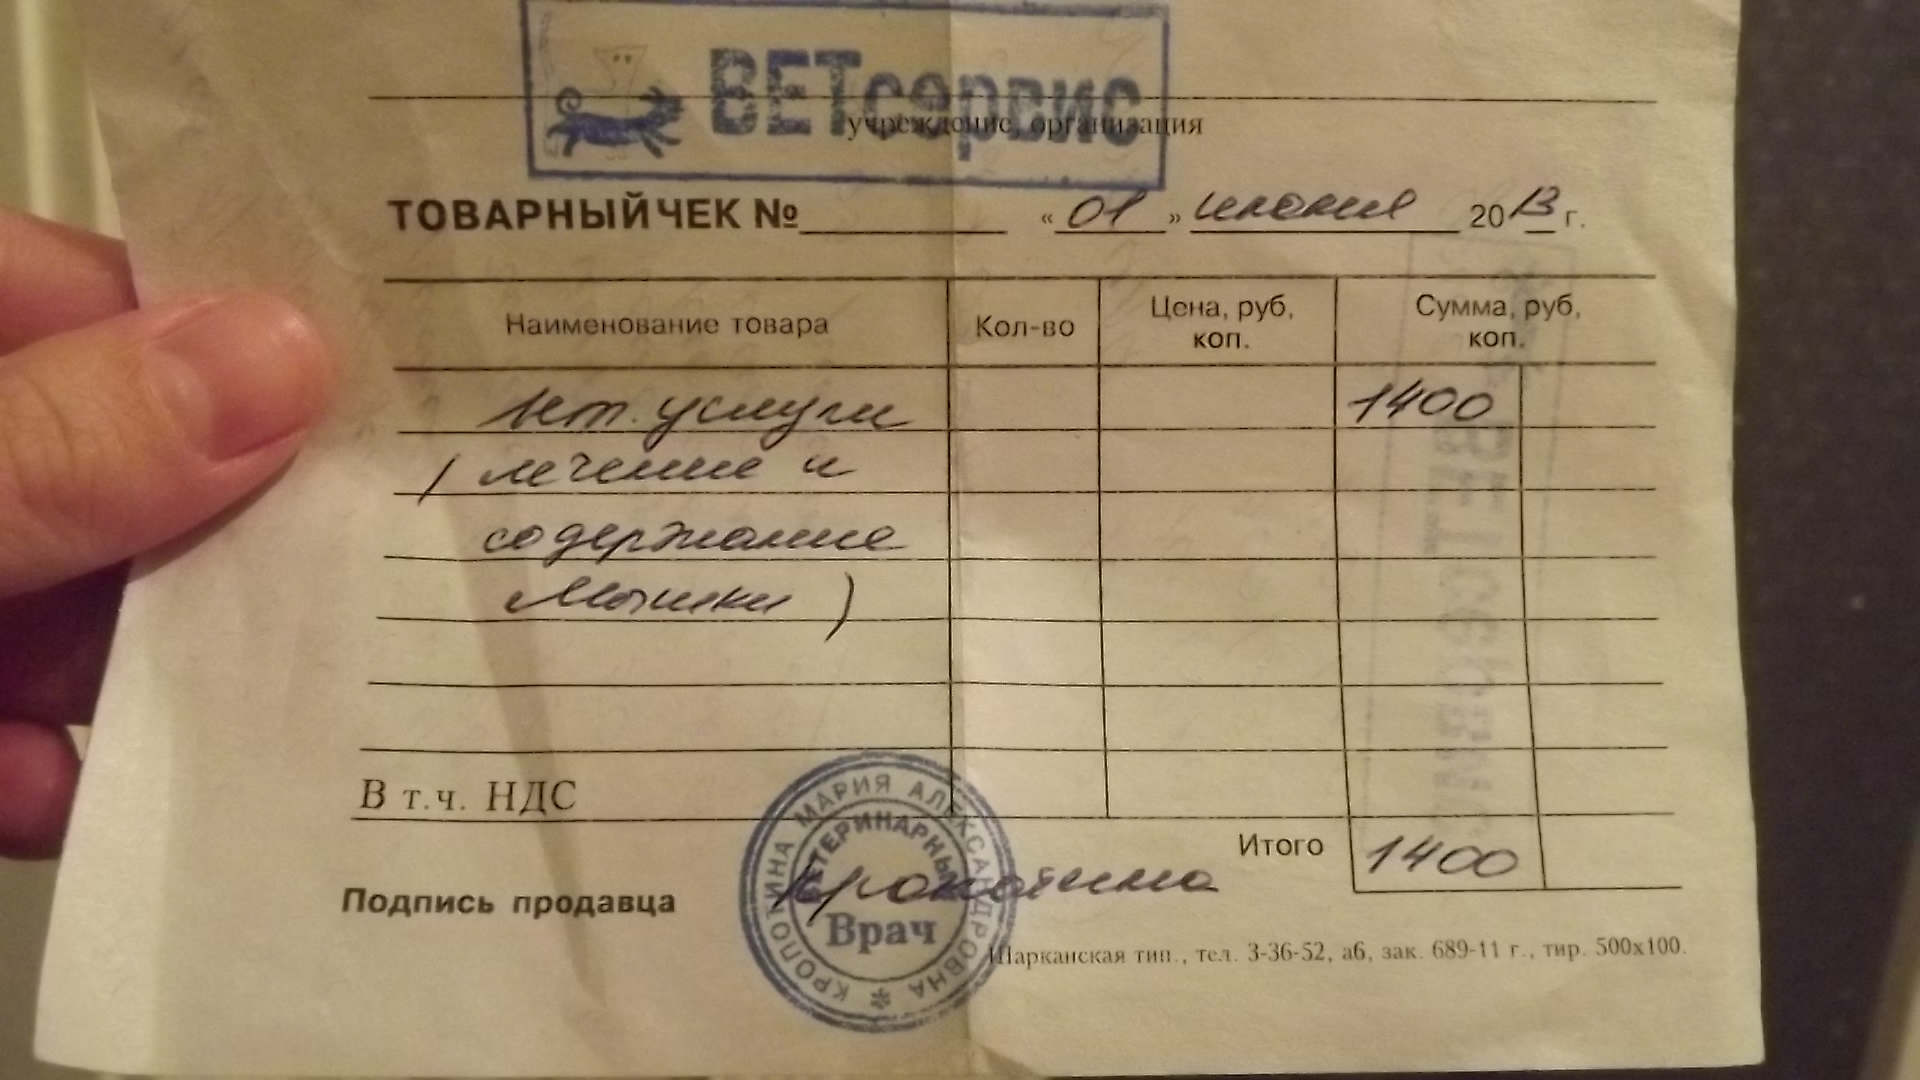 ВЕТсервис
учреждение, организация
ТОВАРНЫЙ ЧЕК № « 01 » 2013 г.
Наименование товара Кол-во Цена, руб, коп. Сумма, руб, коп.
вет. услуги 1400
( лечение и
содержание
Мышки )
В т.ч. НДС
Итого 1400
Подпись продавца Кропотина
КРОПОТИНА МАРИЯ АЛЕКСАНДРОВНА *
ВЕТЕРИНАРНЫЙ
Врач
Шарканская тип., тел. 3-36-52, а6, зак. 689-11 г., тир. 500х100.